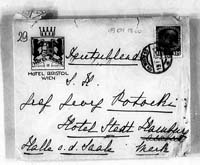 29
HOTEL BRISTOL
WIEN
Deutschland
S. H.
Graf Georg Potocki
Hotel Stadt Hamburg
Halle a. d. Saale